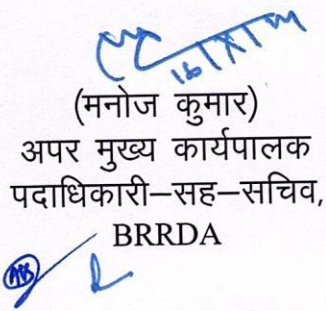 (मनोज कुमार)
अपर मुख्य कार्यपालक
पदाधिकारी–सह–सचिव,
BRRDA